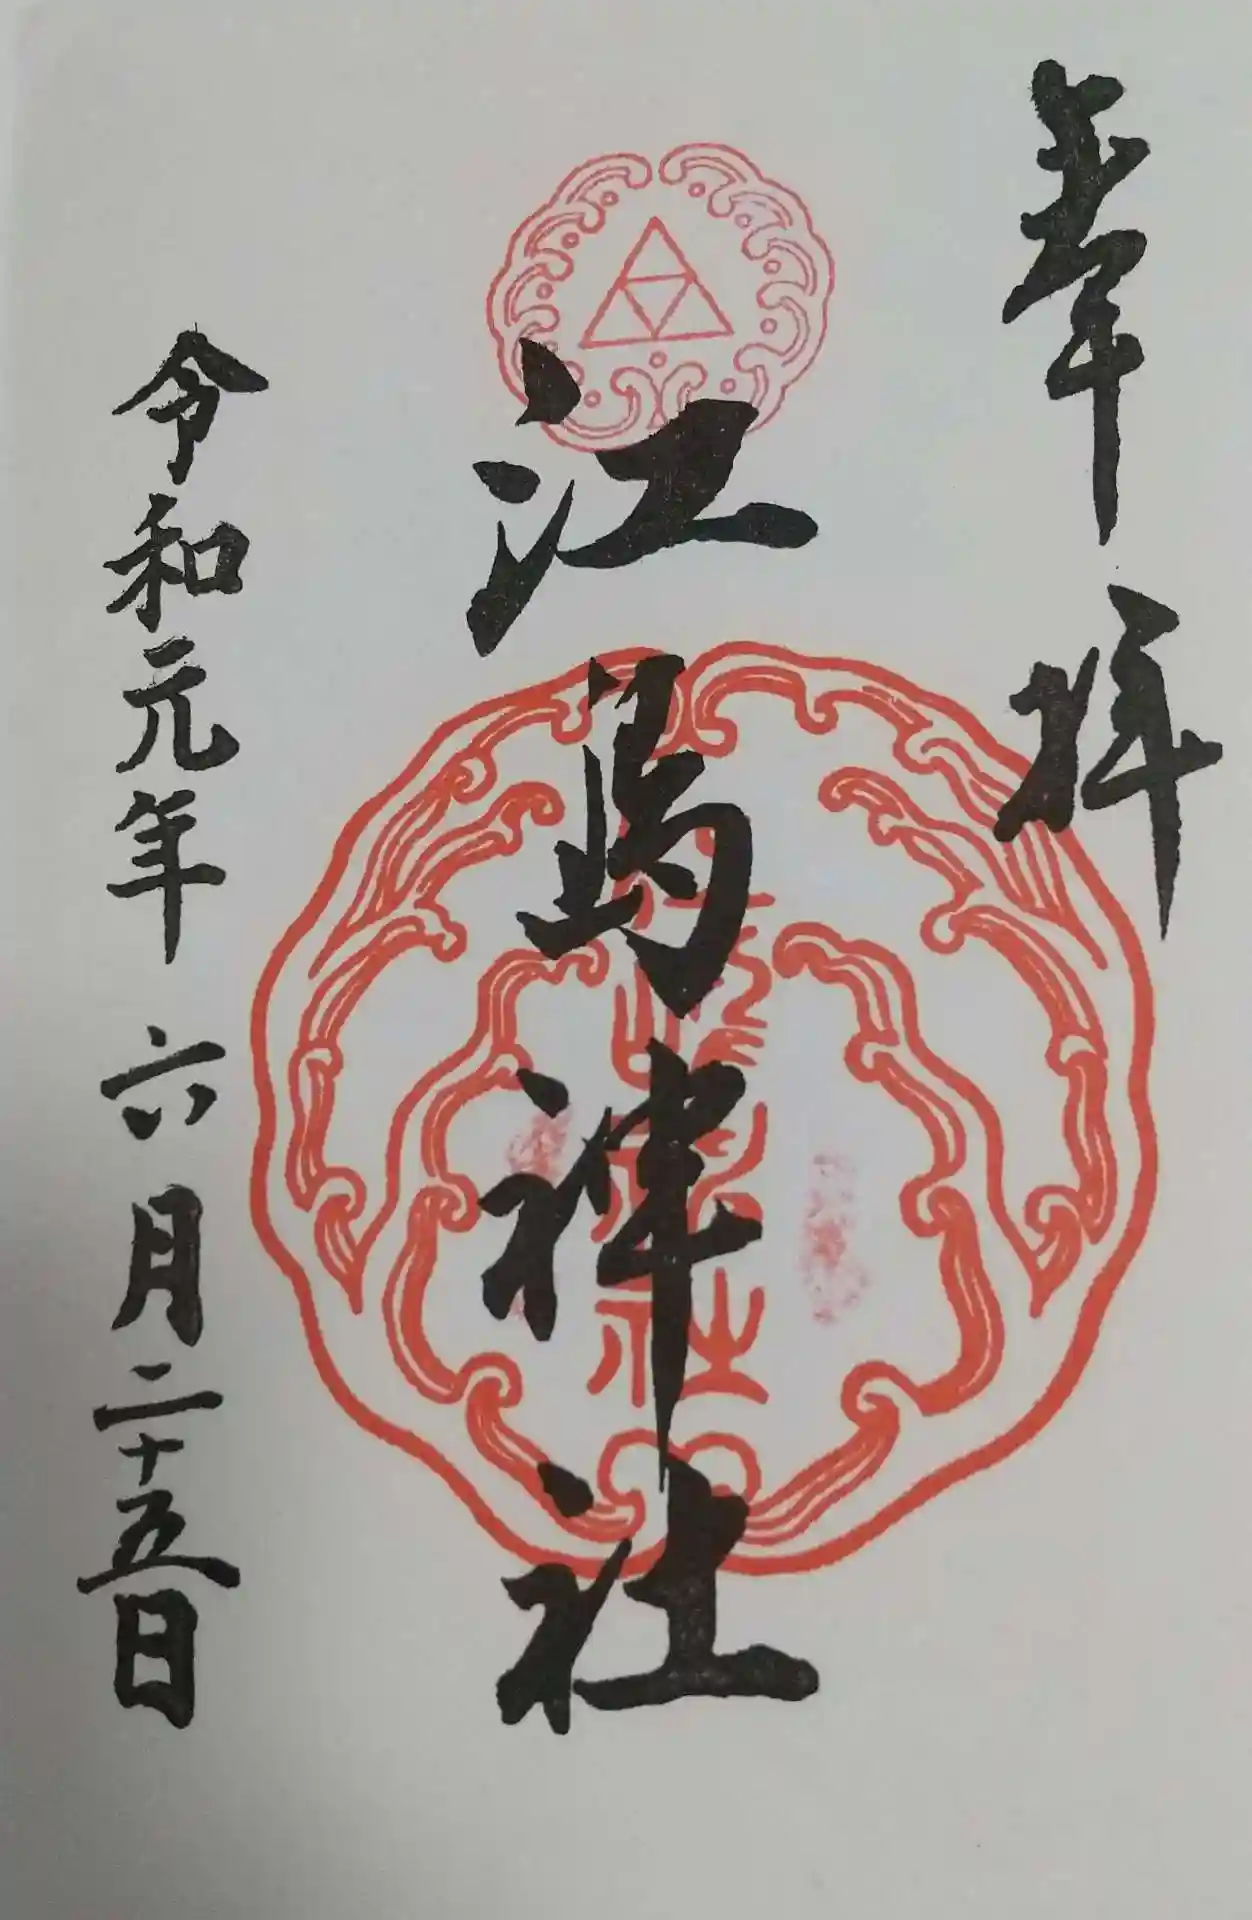 奉拝
江島神社
令和元年 六月二十五日